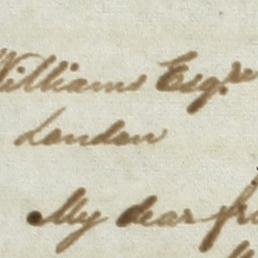 Williams Esqre
London
My dear fri